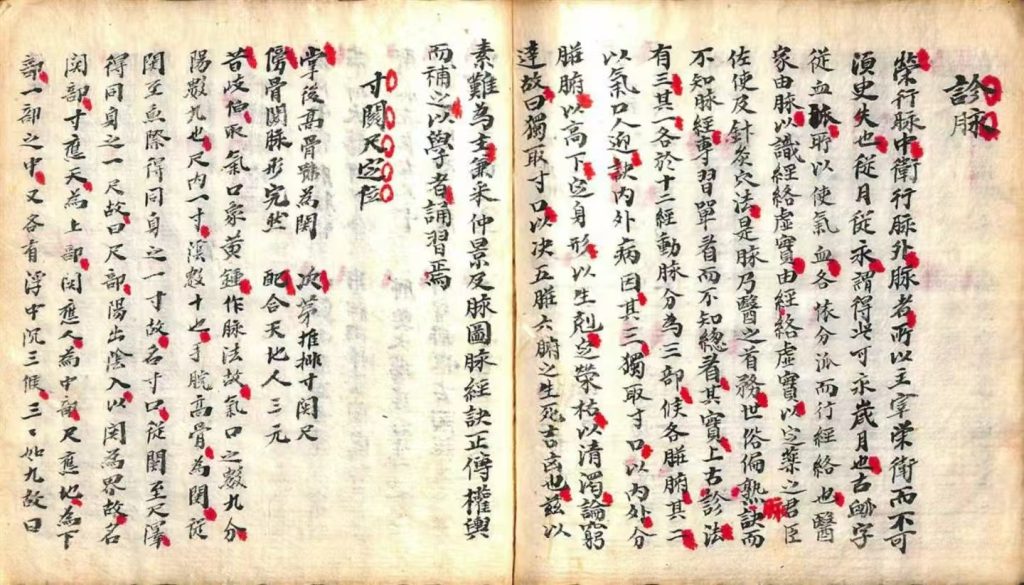 診脉
榮行脉中衛行脉外脉者所以主宰榮衛而不可
湏史失也從月從永謂得此可永歲月也古字
從血脉所以使氣血各依分派而行經絡也醫
家由脉以識經絡虛實由經絡虛實以定藥之君臣
佐使及針灸穴法是脉乃醫之首務世俗偏熟訣而
脉
不知脉經專習單看而不知總看其實上古診法
有三其一各於十二經動脉分為三部候各臟腑其二
以氣口人迎訣内外病因其三獨取寸口以内外分
臟腑以高下定身形以生剋定榮枯以清濁論窮
達故曰獨取寸口以决五臟六腑之生死吉凶也茲以
素難為主兼采仲景及脉圖脉經訣正傳權輿
而補之以學者誦習焉
寸關尺定位
掌後高骨號為関 次第推排寸関尺
傍骨関脉形完然 配合天地人三元
昔岐伯取氣口象黃鍾作脉法故氣口之數九分
陽數九也尺内一寸陰數十也手腕高骨為関從
関至魚際得同身之一寸故名寸口從関至尺澤
得同身之一尺故曰尺部陽出陰入以関為界故名
関部寸應天為上部関應人為中部尺應地為下
部一部之中又各有浮中沉三候三〻如九故曰